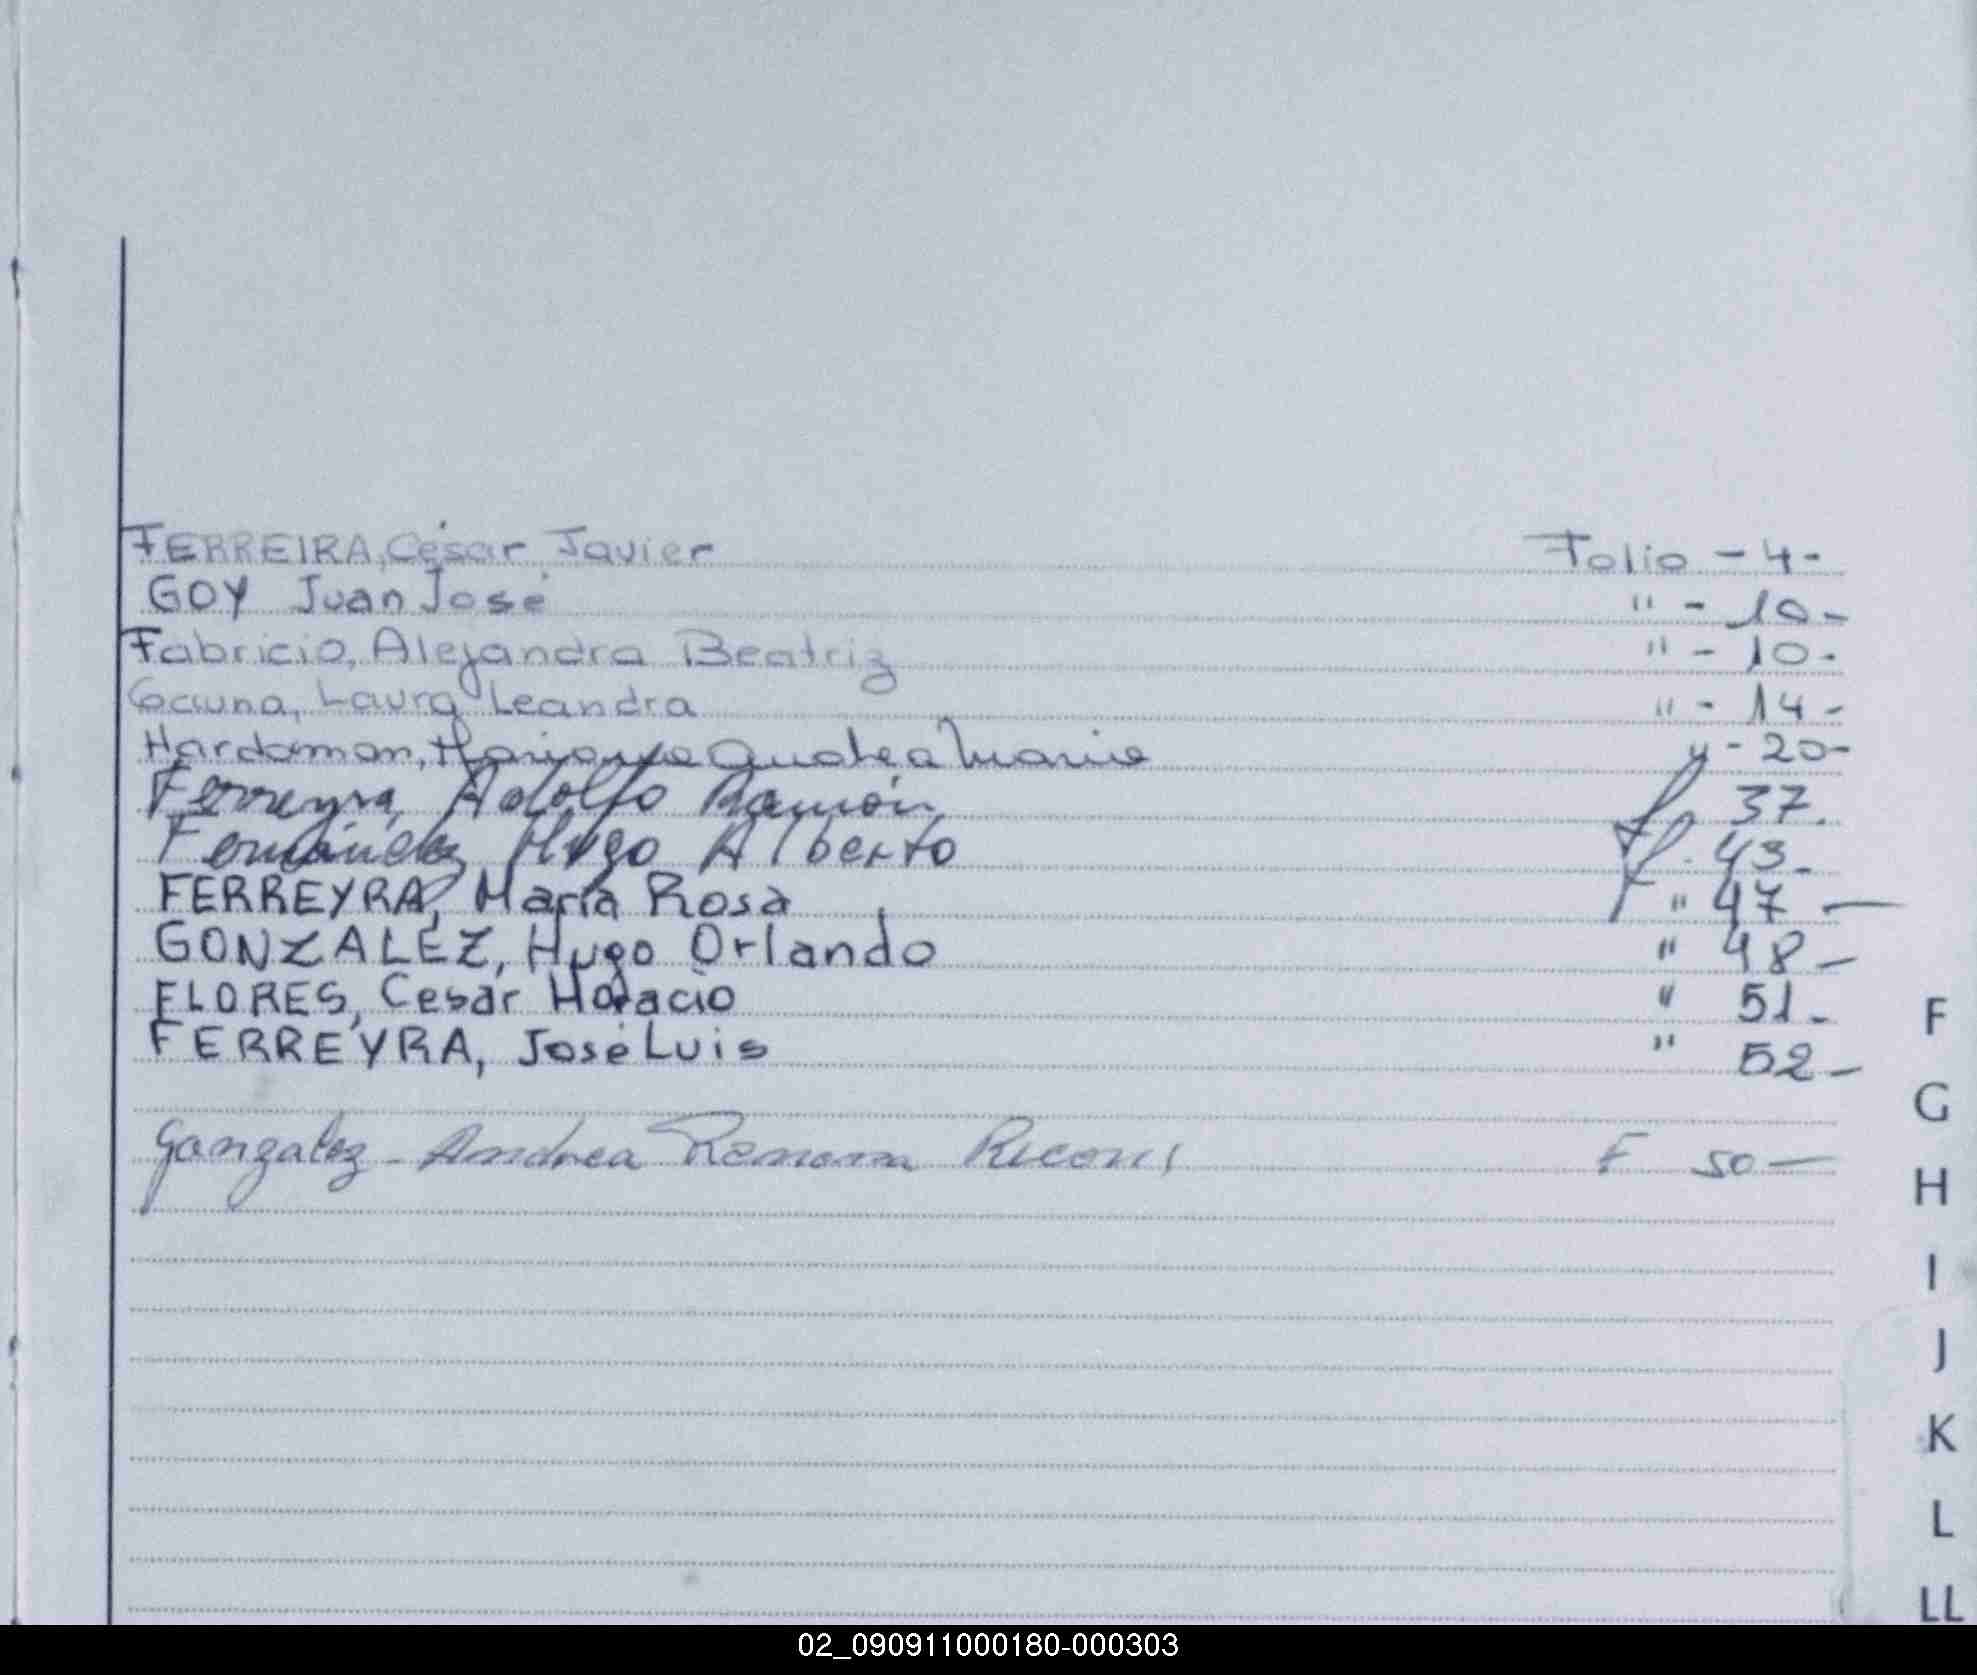 FERREIRA, César Javier Folio - 4-
GOY Juan José " - 10-
Fabricio, Alejandra Beatriz " - 10-
Gauna, Laura Leandra " - 14-
Hardaman, Maria - 20-
Ferreyra, Adolfo Ramón f. 37.
Fernández Hugo Alberto f. 43-
FERREYRA, María Rosa F " 47-
GONZALEZ, Hugo Orlando " 48-
FLORES, Cesar Horacio " 51-
FERREYRA, José Luis " 52-
Gonzalez - Andrea Ramona F 50-
F
G
H
I
J
K
L
LL
02_090911000180-000303